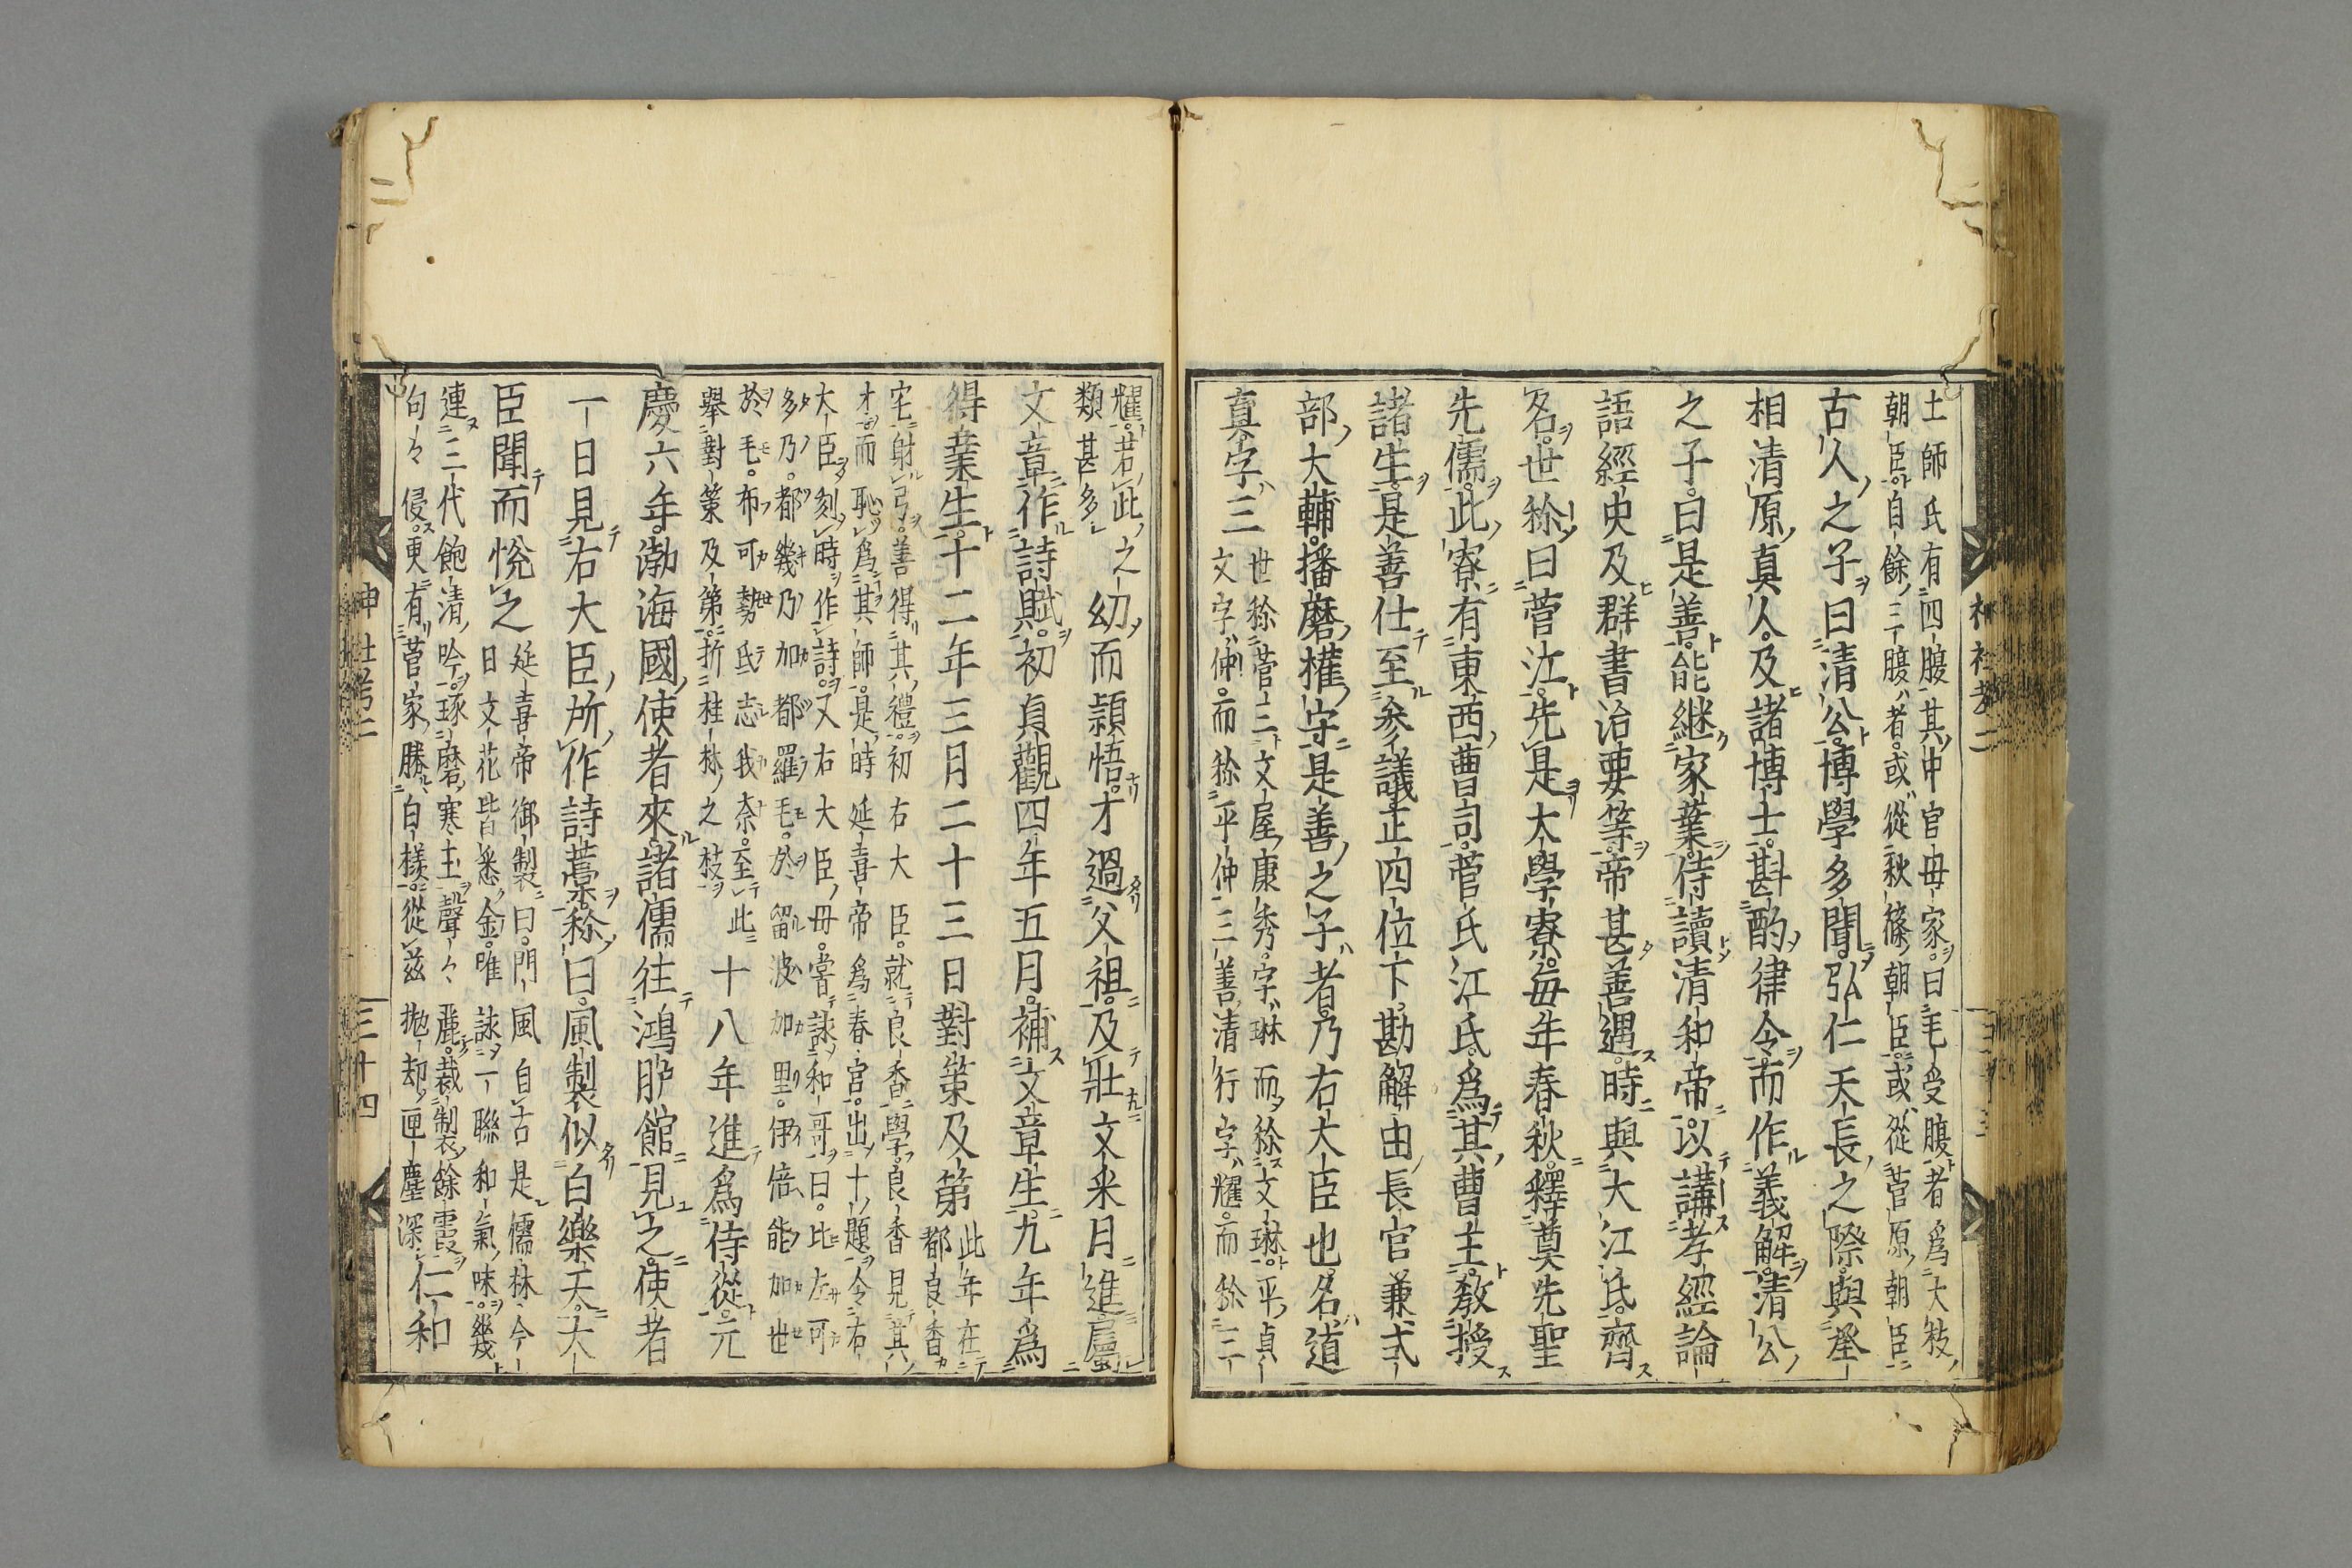 土師氏有四腹其中官毋家曰毛受腹者爲大枝
朝臣自餘三腹者或從秋篠朝臣或從菅原朝臣
古人之子曰清公博學多聞弘仁天長之際與
相清原真人及諸博士斟酌律令而作義解清公
之子曰是善能継家業侍讀清和帝以講孝經論
語經史及群書治要等帝甚善遇時與大江氏齊
名世称曰菅江先是大學寮毎年春秋釋奠先聖
先儒此寮有東西曹司菅氏江氏爲其曹主教授
諸生是善仕至參議正四位下勘解由長官兼式
部大輔播磨權守是善之子者乃右大臣也名道
真字三
世称菅三文屋康秀字琳而称文琳平貞
文字仲而称平仲三善清行字耀而称三
神社考二
三十三
耀若此之
類甚多
幼而穎悟才過父祖及壯文米月進屬
文章作詩賦初貞觀四年五月補文章生九年爲
得業生十二年三月二十三日對策及第
此年在
都良香
宅射弓善得其禮初右大臣就良香學良香見其
才而恥爲其師是時延喜帝爲春宮出十題令右
大臣刻時作詩又右大臣毋嘗詠和哥曰比左可
多乃都幾乃加都羅毛於留波加里伊倍能加世
於毛布可勢氐志我奈至此
舉對策及第折桂林之枝
十八年進爲侍從元
慶六年渤海國使者來諸儒往鴻臚館見之使者
一日見右大臣所作詩藁称曰風製似白樂天大
臣聞而悅之
延喜帝御製曰門風自古是儒林今
日文花皆悉金唯詠一聯和氣味幾
連三代飽清吟琢磨寒玉聲々麗裁製餘霞
句々侵更有菅家勝白様從茲抛却匣塵深
仁和
神社考二
三十四